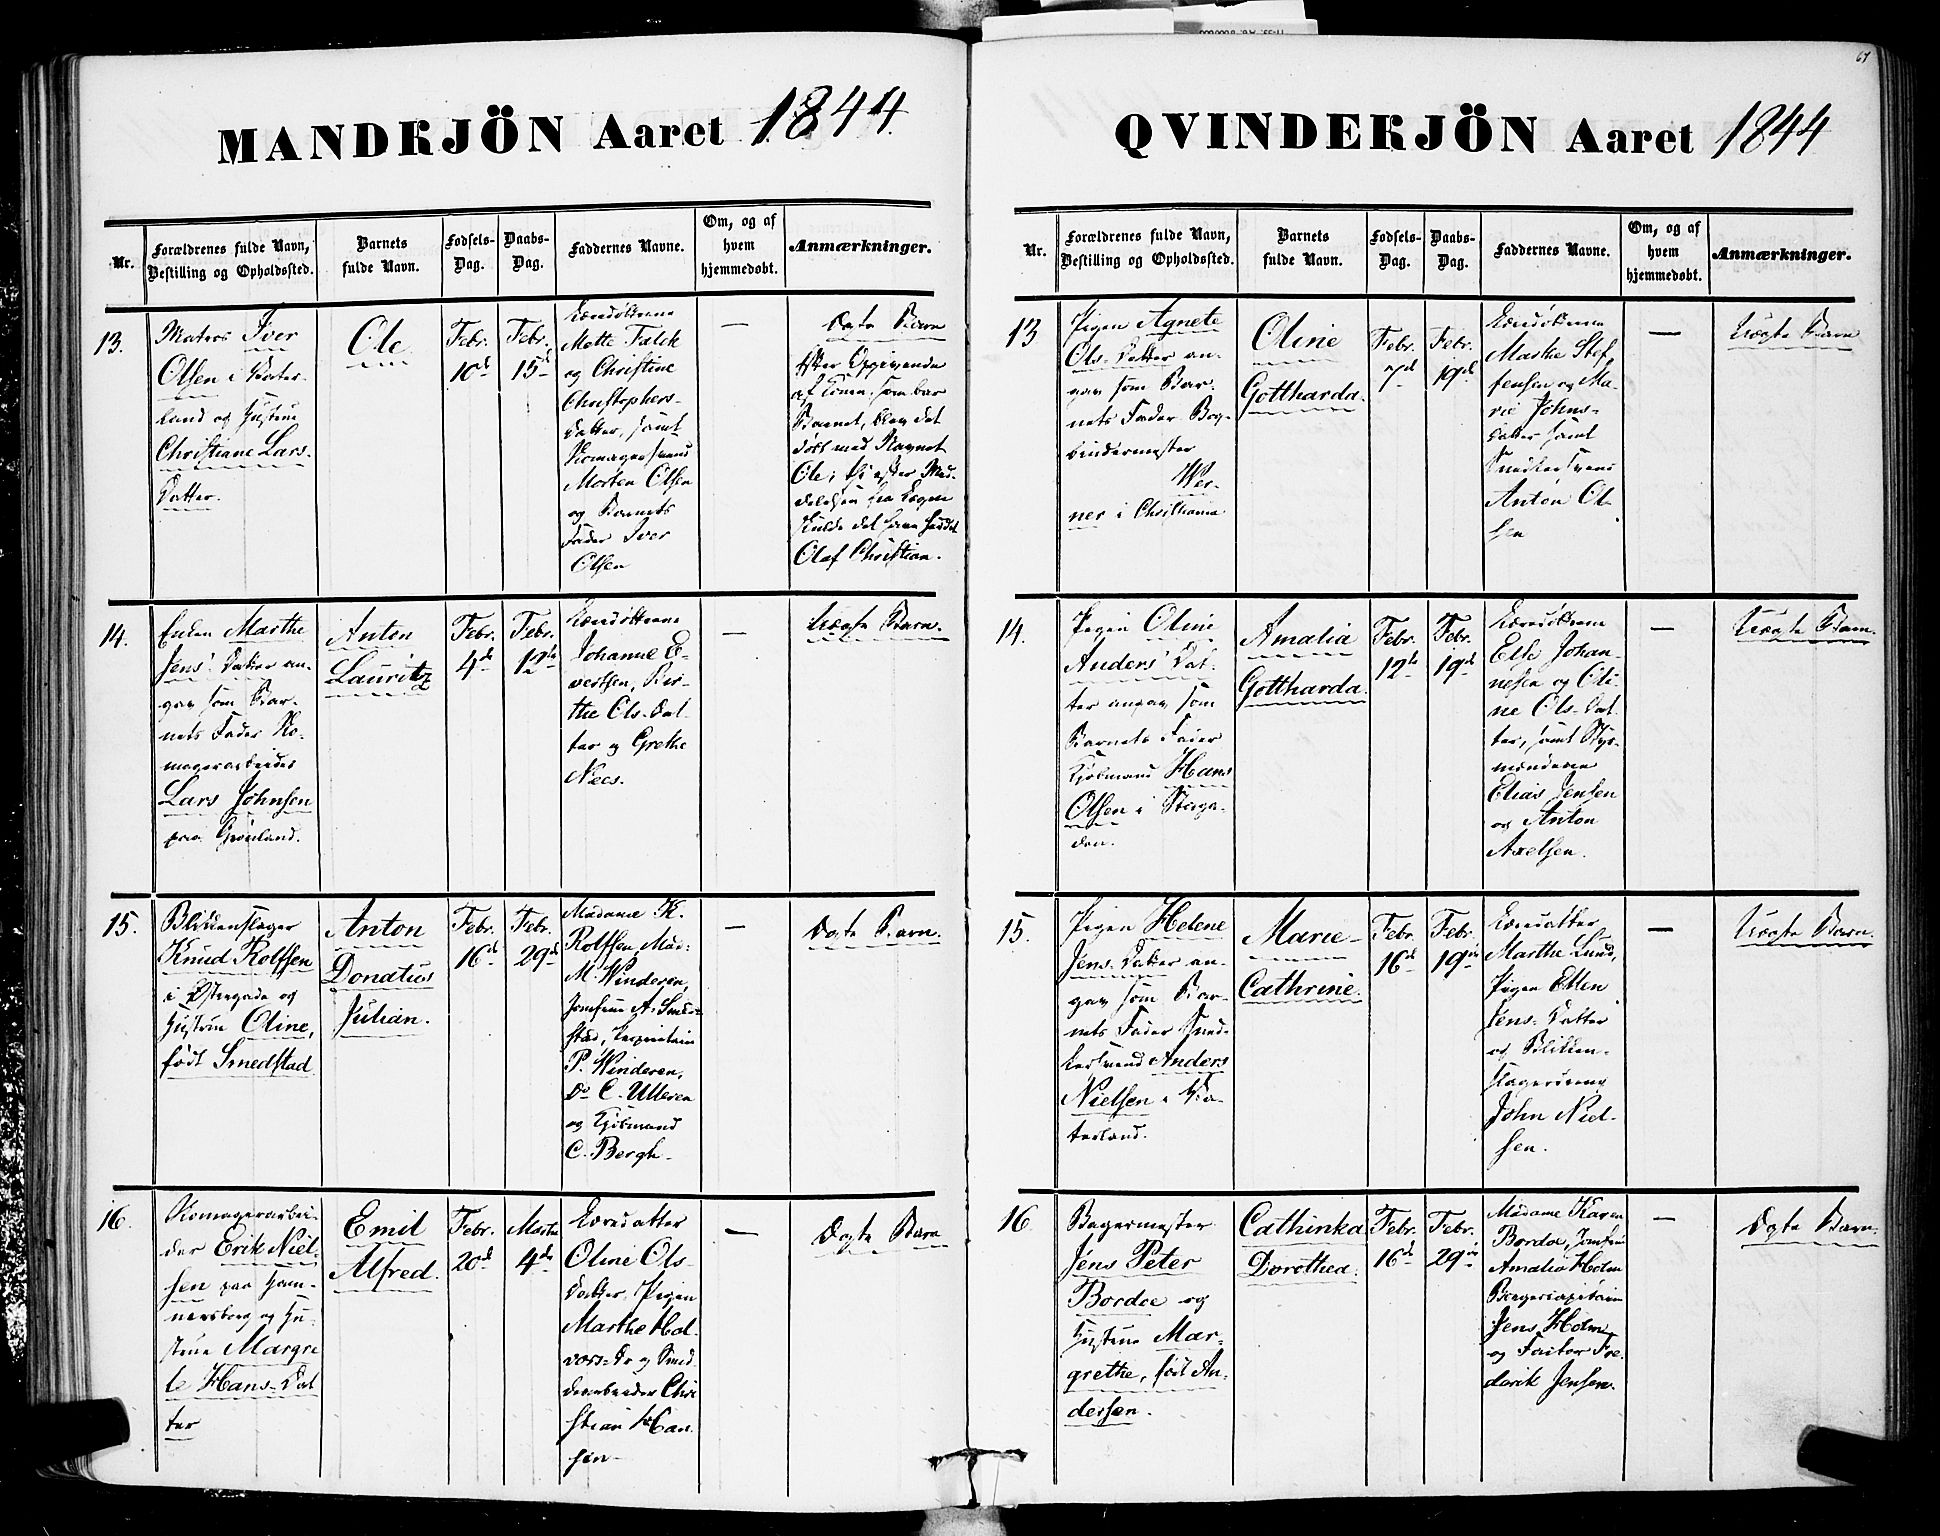 MANDKJÖN Aaret 1844.
Nr.
Forældrenes fulde Navn,
Bestilling og Opholdssted.
Barnets
fulde Navn.
Fødsels-
Dag.
Daabs-
Dag.
Faddernes Navne.
Om, og af
hvem
hjemmedøbt.
Anmærkninger.
13.
Matros Iver
Olsen i Vater-
land og Hustrue
Christiane Lars-
Datter.
Ole
Febr.
10d
Febr.
15d
Mette Falck
og Christine
Christophers-
datter, samt
Morten Olsen
og Barnets
Fader Iver
Olsen
—
Ægte Barn
Efter Opgivende
af Konen, som bar
Barnet, blev det
døbt med Navnet
Ole; thi efter Med-
delelsen fra Sogne
skulde det have heddet
Olaf Christian.
14.
Enken Marthe
Jens' Datter an-
gav som Bar-
nets Fader Ko-
magerarbeider
Lars Johnsen
paa Grønland.
Anton
Lauritz
Febr.
4d
Febr.
12te
Johanne E-
vertsen, Ber-
the Ols-Dat-
ter og Grethe
Nees.
—
Uægte Barn.
15.
Blikkenslager
Knud Rolfsen
i Østergade og
Hustrue Oline,
født Smedstad
Anton
Donatus
Julian.
Febr.
16d
Febr.
29d
Madame K.
Rolfsen, Mad:
M Winderen,
Jomfrue A. Smed-
stad, Proprietair
P. Winderen,
Do C. Ulleren
og Kjøbmand
C. Bergh.
—
Ægte Barn.
16.
Komagerarbei-
der Erik Niel-
sen paa Ham-
mersborg og Hu-
strue Margre
te Hans-Dat
ter
Emil
Alfred.
Febr.
20d
Marts
4de
Oline Ols-
datter, Pigen
Marthe Hal-
vors-Dr og Smed
dearbeider Chri
stian Han-
sen
—
Ægte Barn
67
QVINDEKJÖN Aaret 1844
Nr.
Forældrenes fulde Navn,
Bestilling og Opholdssted.
Barnets
fulde Navn.
Fødsels-
Dag.
Daabs-
Dag.
Faddernes Navne.
Om, og af
hvem
hjemmedøbt.
Anmærkninger.
13
Pigen Agnete
Ols-Datter an-
gav som Bar-
nets Fader Bog-
bindermester
Wer-
ner i Christiania
Oline
Gottharda.
Febr.
7d
Febr.
19d
Marthe Stef-
fensen og Ma-
rie Johns-
datter samt
Snedkersvend
Anton Ol-
sen
—
Uægte Barn
14.
Pigen Oline
Anders' Dat-
ter angav som
Barnets Fader
Kjøbmand Hans
Olsen i Storga-
den.
Amalia
Gottharda.
Febr.
12te
Febr.
19d
Else Johan-
nesen og Oli-
ne Ols-Dat-
ter, samt Styr-
mændene
Elias Jensen
og Anton
Axelsen.
—
Uægte Barn.
15.
Pigen Helene
Jens-Datter an-
gav som Bar-
nets Fader Sned-
kersvend Anders
Nielsen i Va-
terland.
Marie
Cathrine.
Febr.
16d
Febr.
19
Marthe Lund,
Pigen Ellen
Jens-Datter
og Blikken-
slagersvend
John Niel-
sen.
—
Uægte Barn.
16.
Bagermester
Jens Peter
Bordoe og
Hustrue Mar-
grethe, født An-
dersen.
Cathinka
Dorothea.
Febr.
16d
Febr.
29
Madame Karen
Bordoe, Jomfrue
Amalia Holm
Jens Holm
og Factor Fre-
derik Jensen.
—
Ægte Barn.